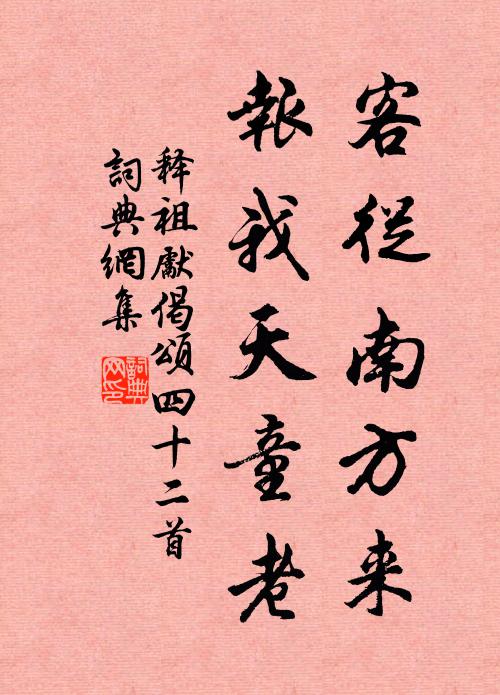 客從南方来
報我天童老
释祖獻偈頌四十二首
詞典網集
詞典
网印